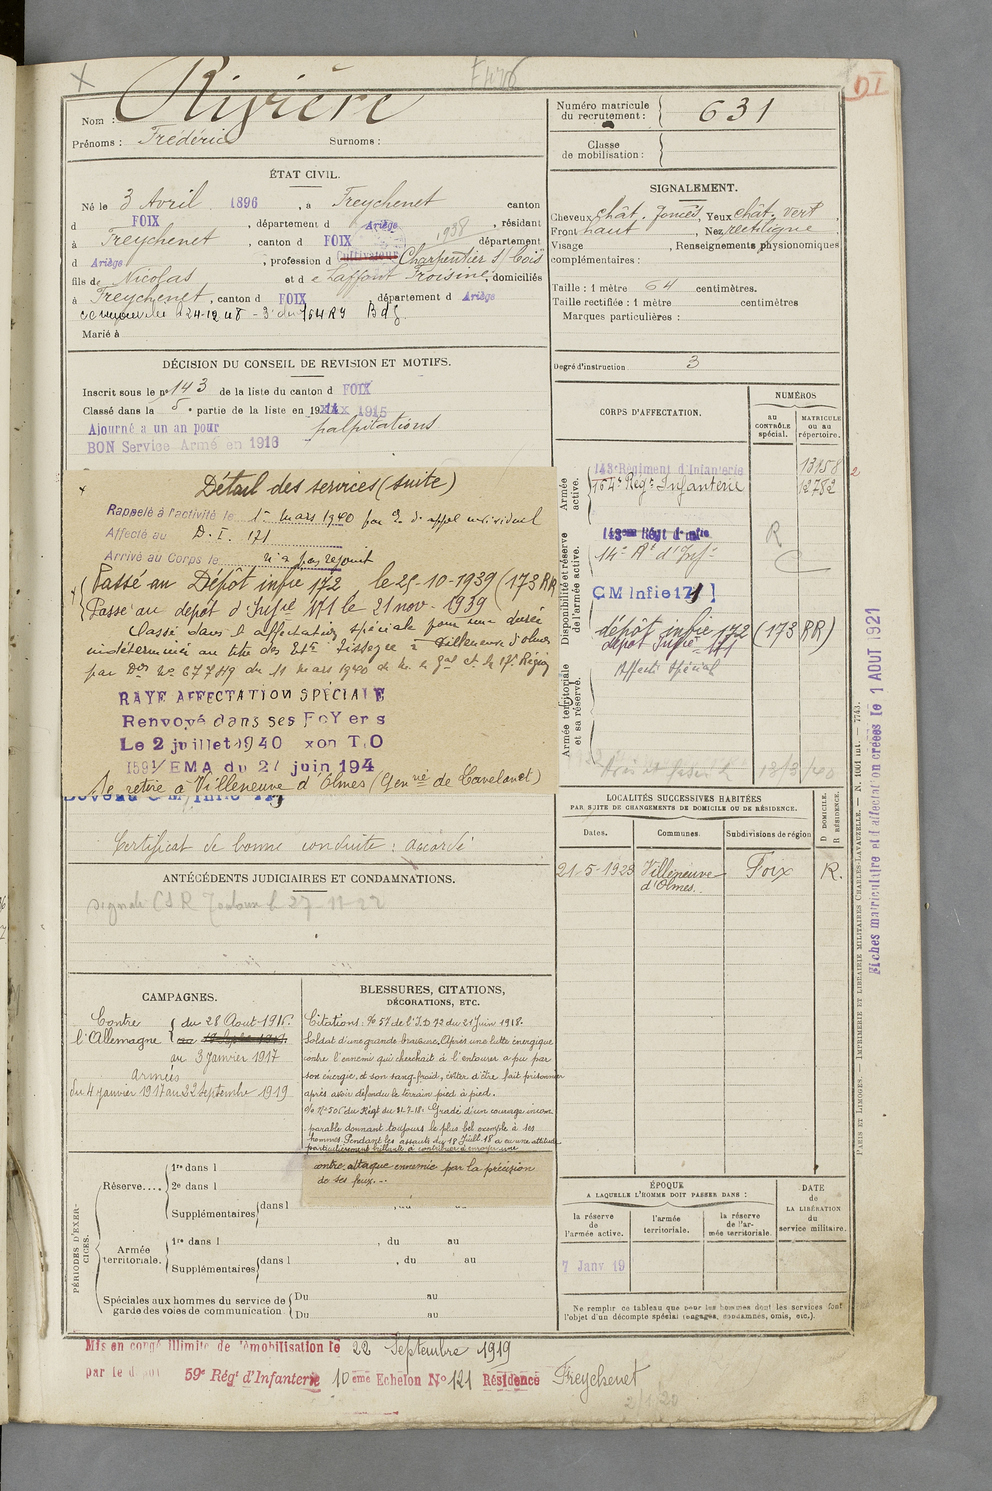 F476
DI
Nom : Rivière
Prénoms : Frédéric Surnoms :
Numéro matricule du recrutement : 631
Classe de mobilisation :
ÉTAT CIVIL.
Né le 3 Avril 1896, à Freychenet canton
d FOIX, département d Ariège, résidant
à Freychenet, canton d FOIX 1938 département
d Ariège, profession d Cultivateur Charpentier s/ bois
fils de Nicolas et d e Laffont Froisine, domiciliés
à Freychenet, canton d FOIX département d Ariège
Marié à
SIGNALEMENT.
Cheveux chât. foncés, Yeux chât. vert,
Front haut, Nez rectiligne,
Visage , Renseignements physionomiques
complémentaires :
Taille : 1 mètre 64 centimètres.
Taille rectifiée : 1 mètre centimètres
Marques particulières :
Degré d'instruction 3
DÉCISION DU CONSEIL DE REVISION ET MOTIFS.
Inscrit sous le n° 143 de la liste du canton d FOIX
Classé dans la 5e partie de la liste en 19 1915
Ajourné a un an pour palpitations
BON Service Armé en 1916
Détail des services (suite)
Rappelé à l'activité le 1er mars 1940 par o. d'appel individuel
Affecté au D. I. 171
Arrivé au Corps le n'a pas rejoint
Passé au Dépôt infie 172 le 25-10-1939 (173 RR
Passé au dépôt d'Infie 171 le 21 nov. 1939
Classé dans l'affectation spéciale pour une durée
indéterminée au titre des Ets Tissages à Villeneuve d'Olmes
par Don N° 67789 du 11 mars 1940 de M. le Gal Ct la 17e Région
RAYE AFFECTATION SPÉCIALE
Renvoyé dans ses FOYers
Le 2 juillet 1940 xon T.O
1591/EMA du 21 juin 194
Se retire à Villeneuve d'Olmes (Genrie de Lavelanet)
Certificat de bonne conduite : accordé
CORPS D'AFFECTATION.
NUMÉROS
AU CONTRÔLE spécial.
MATRICULE OU AU répertoire.
Armée active.
143e Régiment d'Infanterie 13158
164e Régt Infanterie 12782
Disponibilité et réserve de l'armée active.
143eme Régt d'Infie R
14e Rt d'Infie
CM Infie 171
dépôt infie 172 (173 RR)
dépôt Infie 171
Armée territoriale et sa réserve.
Affecté spécial
ANTÉCÉDENTS JUDICIAIRES ET CONDAMNATIONS.
signalé CSR Toulouse le 27-11-22
LOCALITÉS SUCCESSIVES HABITÉES
PAR SUITE DE CHANGEMENTS DE DOMICILE OU DE RÉSIDENCE.
Dates. Communes. Subdivisions de région D DOMICILE. R RÉSIDENCE.
21-5-1923 Villeneuve d'Olmes. Foix R.
CAMPAGNES.
Contre l'Allemagne
du 28 Aout 1915.
au 3 Janvier 1917
Armées
du 4 janvier 1917 au 22 septembre 1919
BLESSURES, CITATIONS,
DÉCORATIONS, ETC.
Citations : % 57 de l'I.D 72 du 21 Juin 1918.
Soldat d'une grande bravoure. Après une lutte énergique
contre l'ennemi qui cherchait à l'entourer a pu par
son énergie, et son sang-froid, éviter d'être fait prisonnier
après avoir défendu le terrain pied à pied.
% N° 505 du Régt du 31.7.18 : Gradé d'un courage incom
parable donnant toujours le plus bel exemple à ses
hommes. Pendant les assauts du 18 Juill. 18 a eu une attitude
particulièrement brillante a contribué à enrayer une
contre-attaque ennemie par la précision
de ses feux.
PÉRIODES D'EXERCICES.
Réserve....
1re dans l
2e dans l
Supplémentaires dans l
Armée territoriale.
1re dans l , du au
Supplémentaires dans l , du au
Spéciales aux hommes du service de garde des voies de communication.
Du au
Du au
ÉPOQUE
A LAQUELLE L'HOMME DOIT PASSER DANS :
la réserve de l'armée active.
l'armée territoriale.
la réserve de l'armée territoriale.
DATE de LA LIBÉRATION du service militaire.
7 Janv 19
Ne remplir ce tableau que pour les hommes dont les services font
l'objet d'un décompte spécial (engagés, condamnés, omis, etc.).
Mis en congé illimité de démobilisation le 22 Septembre 1919
par le dépôt 59e Régt d'Infanterie 10eme Echelon N° 121 Résidence Freychenet
2/1/20
PARIS ET LIMOGES. — IMPRIMERIE ET LIBRAIRIE MILITAIRES CHARLES-LAVAUZELLE. — N. 1061 int. — 7743.
Fiches matriculaire et d'affectation créées le 1 AOUT 1921